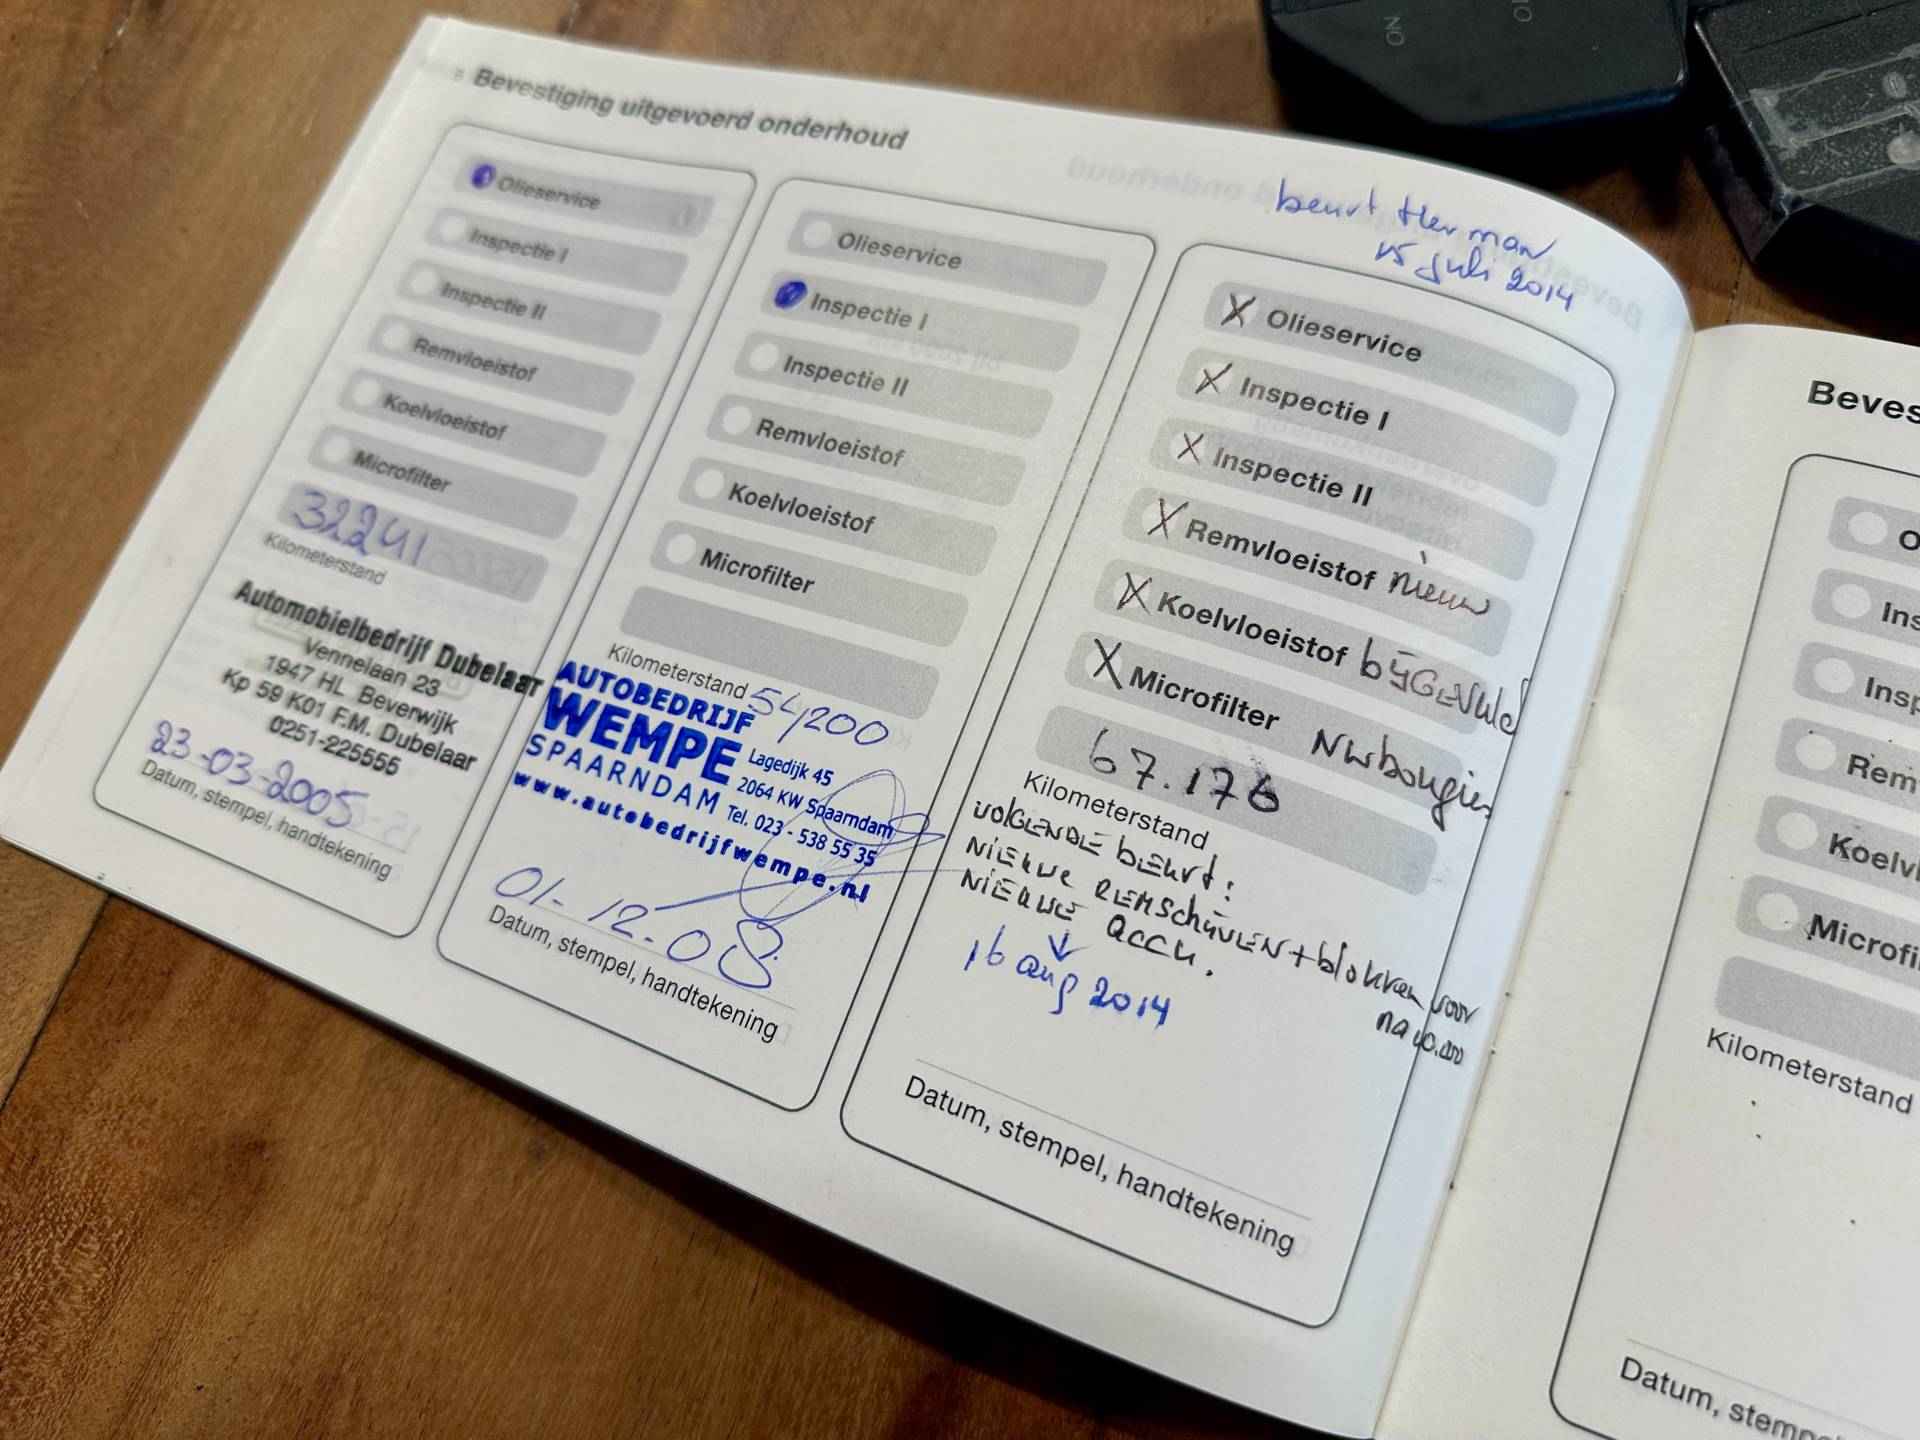 8 Bevestiging uitgevoerd onderhoud
Olieservice
Inspectie I
Inspectie II
Remvloeistof
Koelvloeistof
Microfilter
32241
Kilometerstand
Automobielbedrijf Dubelaar
Vennelaan 23
1947 HL Beverwijk
Kp 59 K01 F.M. Dubelaar
0251-225555
23-03-2005
Datum, stempel, handtekening
Olieservice
Inspectie I
Inspectie II
Remvloeistof
Koelvloeistof
Microfilter
Kilometerstand 54200
AUTOBEDRIJF
WEMPE Lagedijk 45
2064 KW Spaarndam
SPAARNDAM Tel. 023 - 538 55 35
www.autobedrijfwempe.nl
01-12-08
Datum, stempel, handtekening
beurt Herman
15 juli 2014
X Olieservice
X Inspectie I
X Inspectie II
X Remvloeistof nieuw
X Koelvloeistof bijgevuld
X Microfilter Nw bougies
67.176
Kilometerstand
volgende beurt:
nieuwe remschijven + blokken voor
nieuwe accu.
16 aug 2014
Datum, stempel, handtekening
Beves
O
Ins
Insp
Rem
Koelv
Microfi
Kilometerstand
Datum, stempe
NO